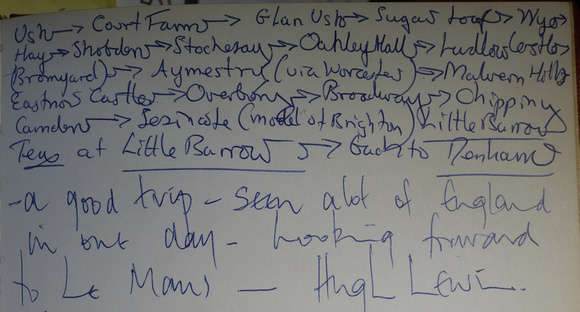 Usk → Court Farm → Glan Usk → Sugar Loaf → Wye →
Hay → Shobdon → Stokesay → Oakley Hall → Ludlow Castle →
(Bromyard) → Aymestry (via Worcester) → Malvern Hills
Eastnor Castle → Overbury → Broadway → Chipping
Camden → Sezincote (model of Brighton) Little Barrow
Tea at Little Barrow → back to Denham
- a good trip - seen a lot of England
in one day - looking forward
to Le Mans — Hugh